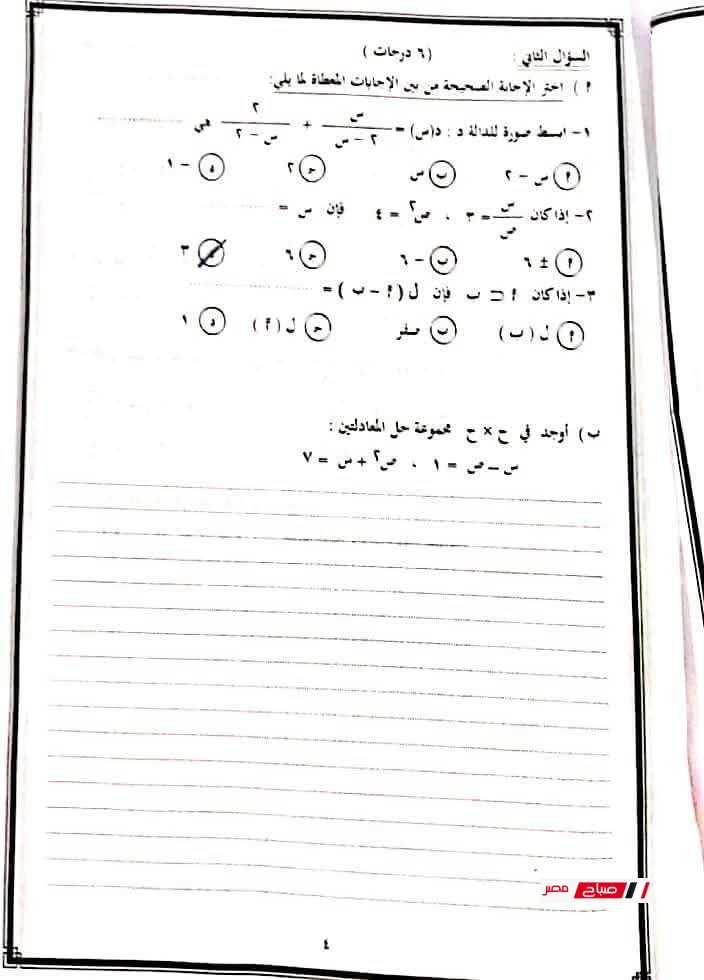 السؤال الثاني : ( ٦ درجات )
٢ ) اختر الإجابة الصحيحة من بين الإجابات المعطاة لما يلي:
١- ابسط صورة للدالة د : د(س) = س / (٢ - س) + ٢ / (س - ٢) هي ..........
أ س - ٢ ب س ج ٢ د - ١
٢- إذا كان س / ص = ٣ ، ص٢ = ٤ فإن س = ..........
أ ± ٦ ب - ٦ ج ٦ د ٣
٣- إذا كان أ ⊂ ب فإن ل ( أ - ب ) = ..........
أ ل ( ب ) ب صفر ج ل ( أ ) د ١
ب) أوجد في ح × ح مجموعة حل المعادلتين :
س - ص = ١ ، ص٢ + س = ٧
صباح مصر
٤